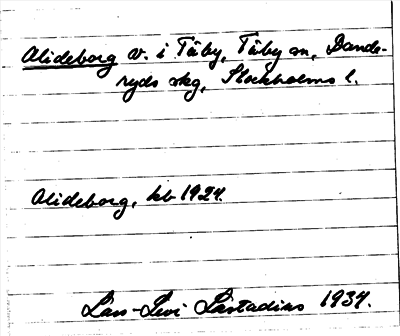 Alideborg v. i Täby, Täby sn, Dande-
ryds skg, Stockholms l.
Alideborg, kb 1924.
Lars-Levi Læstadius 1934.